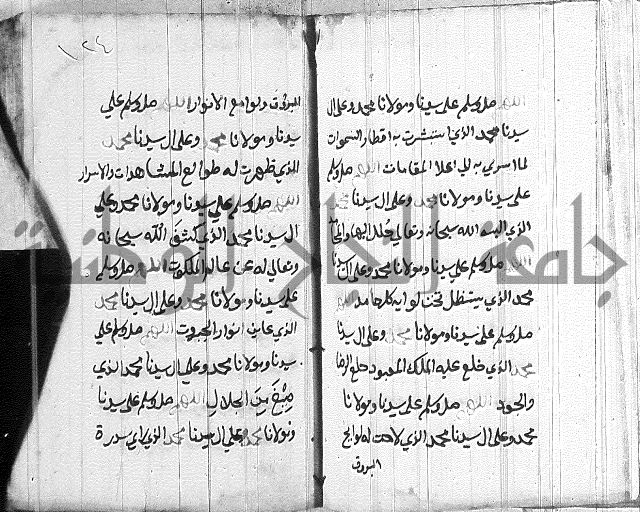 اللهم صل وسلم على سيدنا ومولانا محمد وعلى ال
سيدنا محمد الذي استبشرت به اقطار السموات
لما اسري به الى اعلا المقامات اللهم صل وسلم
على سيدنا ومولانا محمد وعلى ال سيدنا محمد
الذي البسه الله سبحانه وتعالى حلل البها والجا
اللهم صل وسلم على سيدنا ومولانا محمد وعلى ال سيدنا
محمد الذي يستظل تحت لوايه كل حامد اللهم
صل وسلم على سيدنا ومولانا محمد وعلى ال سيدنا
محمد الذي خلع عليه الملك المعبود خلع الرضا
والجود اللهم صل وسلم على سيدنا ومولانا
محمد وعلى ال سيدنا محمد الذي لاحت له لوايح
البروق
١٢٤
البروق ولوامع الانوار اللهم صل وسلم على
سيدنا ومولانا محمد وعلى ال سيدنا محمد
الذي ظهرت له طوالع المشاهدات والاسرار
اللهم صل وسلم على سيدنا ومولانا محمد وعلى
ال سيدنا محمد الذي كشف الله سبحانه
وتعالى له عن عالم الملكوت اللهم صل وسلم
على سيدنا ومولانا محمد وعلى ال سيدنا محمد
الذي عاين انوار الجبروت اللهم صل وسلم على
سيدنا ومولانا محمد وعلى ال سيدنا محمد الذي
من الجلال اللهم صل وسلم على سيدنا
ومولانا محمد وعلى ال سيدنا محمد الذي سدرة
جامعة النجاح الوطنية